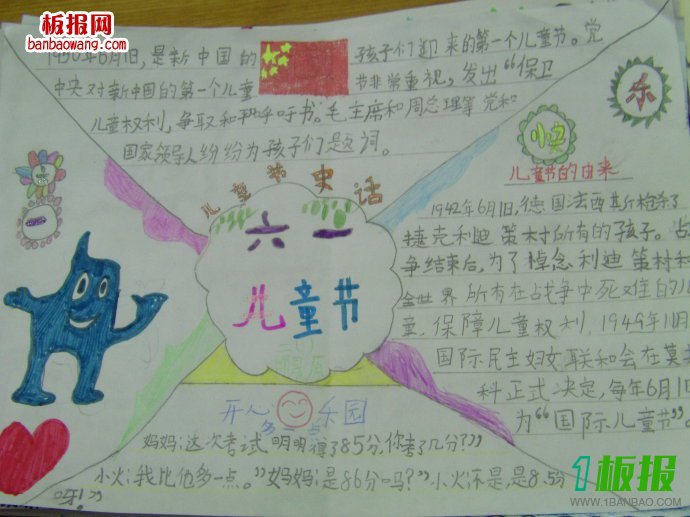 板报网
banbaowang.com
1950年6月1日,是新中国的 孩子们迎来的第一个儿童节。党
中央对新中国的第一个儿童 节非常重视,发出“保卫
儿童权利,争取和平呼吁书。毛主席和周总理等党和
国家领导人纷纷为孩子们题词。
乐
快
儿童节史话
六一
儿童节
儿童节的由来
1942年6月1日,德国法西斯枪杀了
捷克利迪策村所有的孩子。
争结束后,为了悼念利迪策村和
全世界所有在战争中死难的儿
童,保障儿童权利,1949年11月
国际民主妇女联和会在莫
科正式决定,每年6月1
为“国际儿童节”
开心 乐园
多一点
妈妈:这次考试明明得了85分,你考了几分?”
小火:我比他多一点。”妈妈:是86分吗?”小火:不是,是8.5分
呀!”
1板报
WWW.1BANBAO.COM